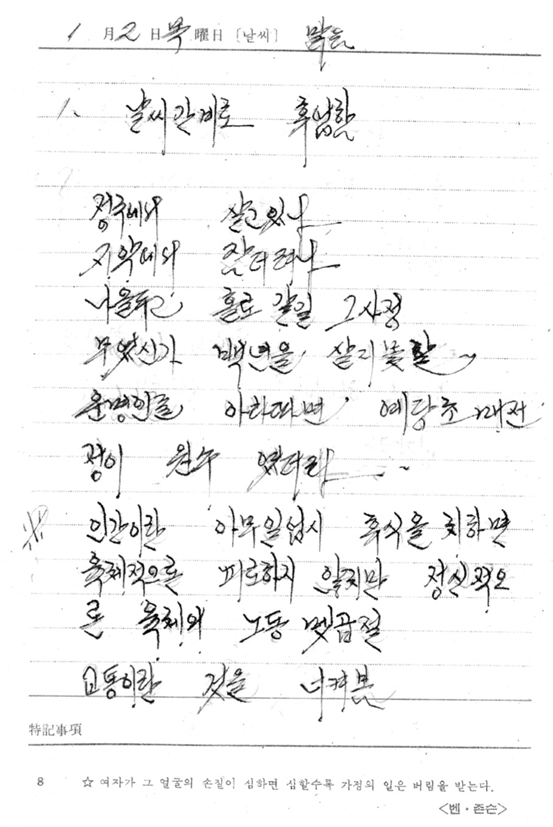 1 月 2 日 목 曜日 [날씨] 맑음
1. 날씨관계로 휴업함
정주에와 살고있나
지악에와 잘더러나
나을두고 홀로 갈길 그사정
무엇신가 백년을 살지못할
운명인를 아하따면 예당초 매전
정이 원수 였더라
※ 인간이란 아무일업시 휴식을 취하면
육체적으론 피로하지 않지만 정신적으
론 육체의 노동 몃곱절
고통이란 것을 너켜봄
特記事項
8 ☆ 여자가 그 얼굴의 손질이 심하면 심할수록 가정의 일은 버림을 받는다.
<벤·존슨>